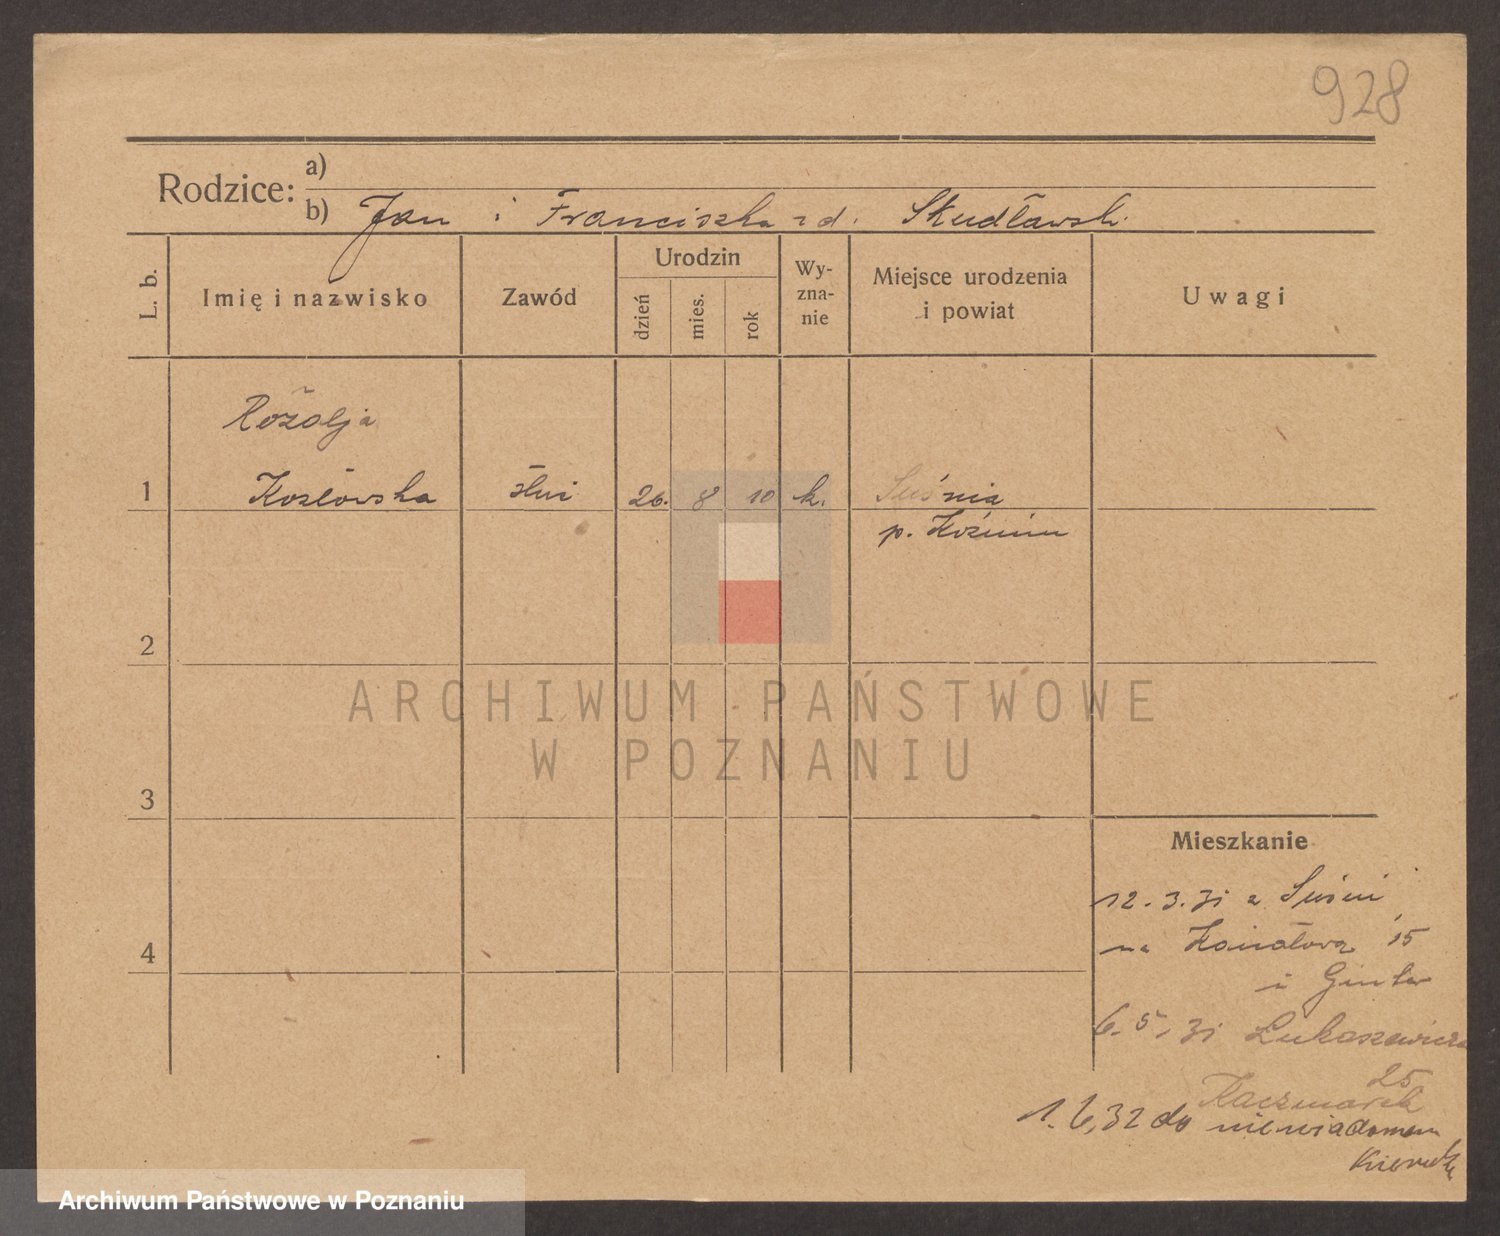 928
Rodzice:
a)
b) Jan i Franciszka zd. Skudławsk.
L. b.
Imię i nazwisko
Zawód
Urodzin
dzień
mies.
rok
Wy-
zna-
nie
Miejsce urodzenia
i powiat
Uwagi
Rozalja
1 Kozłowska 26. 8 10 k. Suśnia
p. Koźmin
2
ARCHIWUM PAŃSTWOWE
W POZNANIU
3
Mieszkanie
12.3.31 z Suśni
4
na Kanałową 15
u Ginter
6.5.31 Łukaszewicza
25
Kaczmarek
1.6,32 do niewiadomem
Archiwum Państwowe w Poznaniu